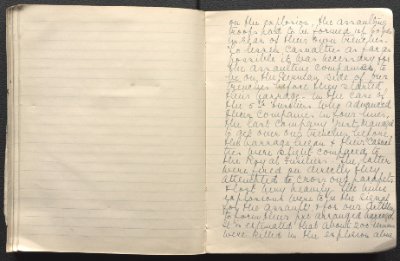 on the explosion, the assaulting
troops had to be formed up before
in plan of their own trenches.
To lessen casualties as far as
possible it was necessary for
the assaulting companies to
be on the German side of our
trenches before they started
their barrage. In the case of
the 5th Fusiliers who advanced
their companies in four lines,
the last company just managed
to get over our trenches before
the barrage began & their casual-
ties were slight compared to
the Royal Fusiliers. The latter
were fired on directly they
attempted to cross our parapets
& lost very heavily. The mines
explosions were to be the signal
for the assault & for our Artillery
to form their pre arranged barrage.
It is estimated that about 200 Germans
were killed in the explosion alone